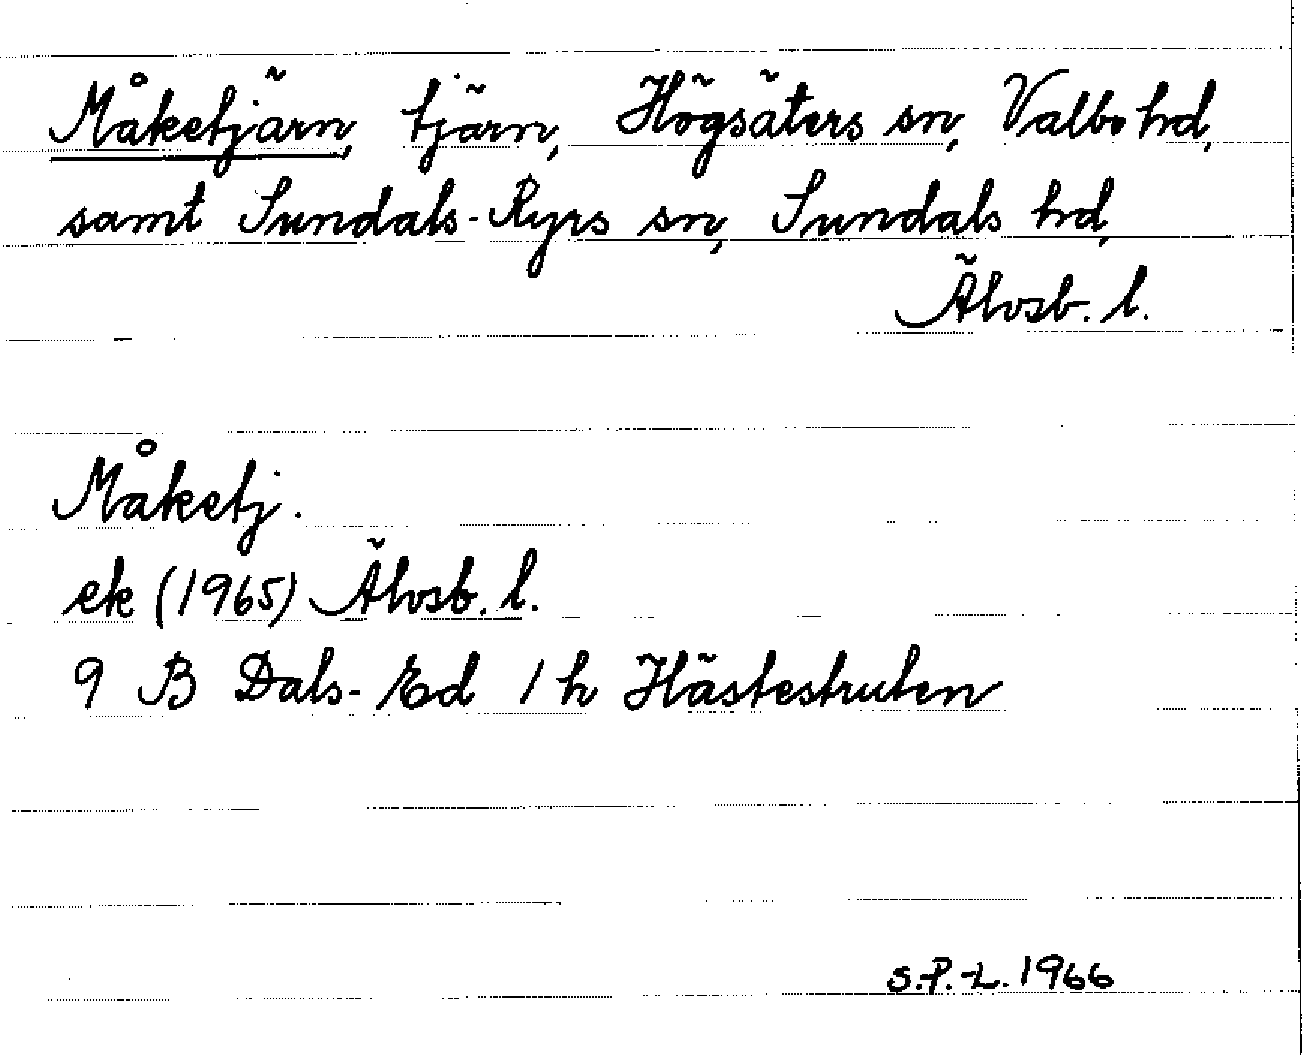 Måketjärn, tjärn, Högsäters sn, Valbo hd,
samt Sundals-Ryrs sn, Sundals hd,
Älvsb. l.
Måketj.
ek (1965) Älvsb. l.
9 B Dals-Ed 1 h Hästestruten
S.P.-L. 1966